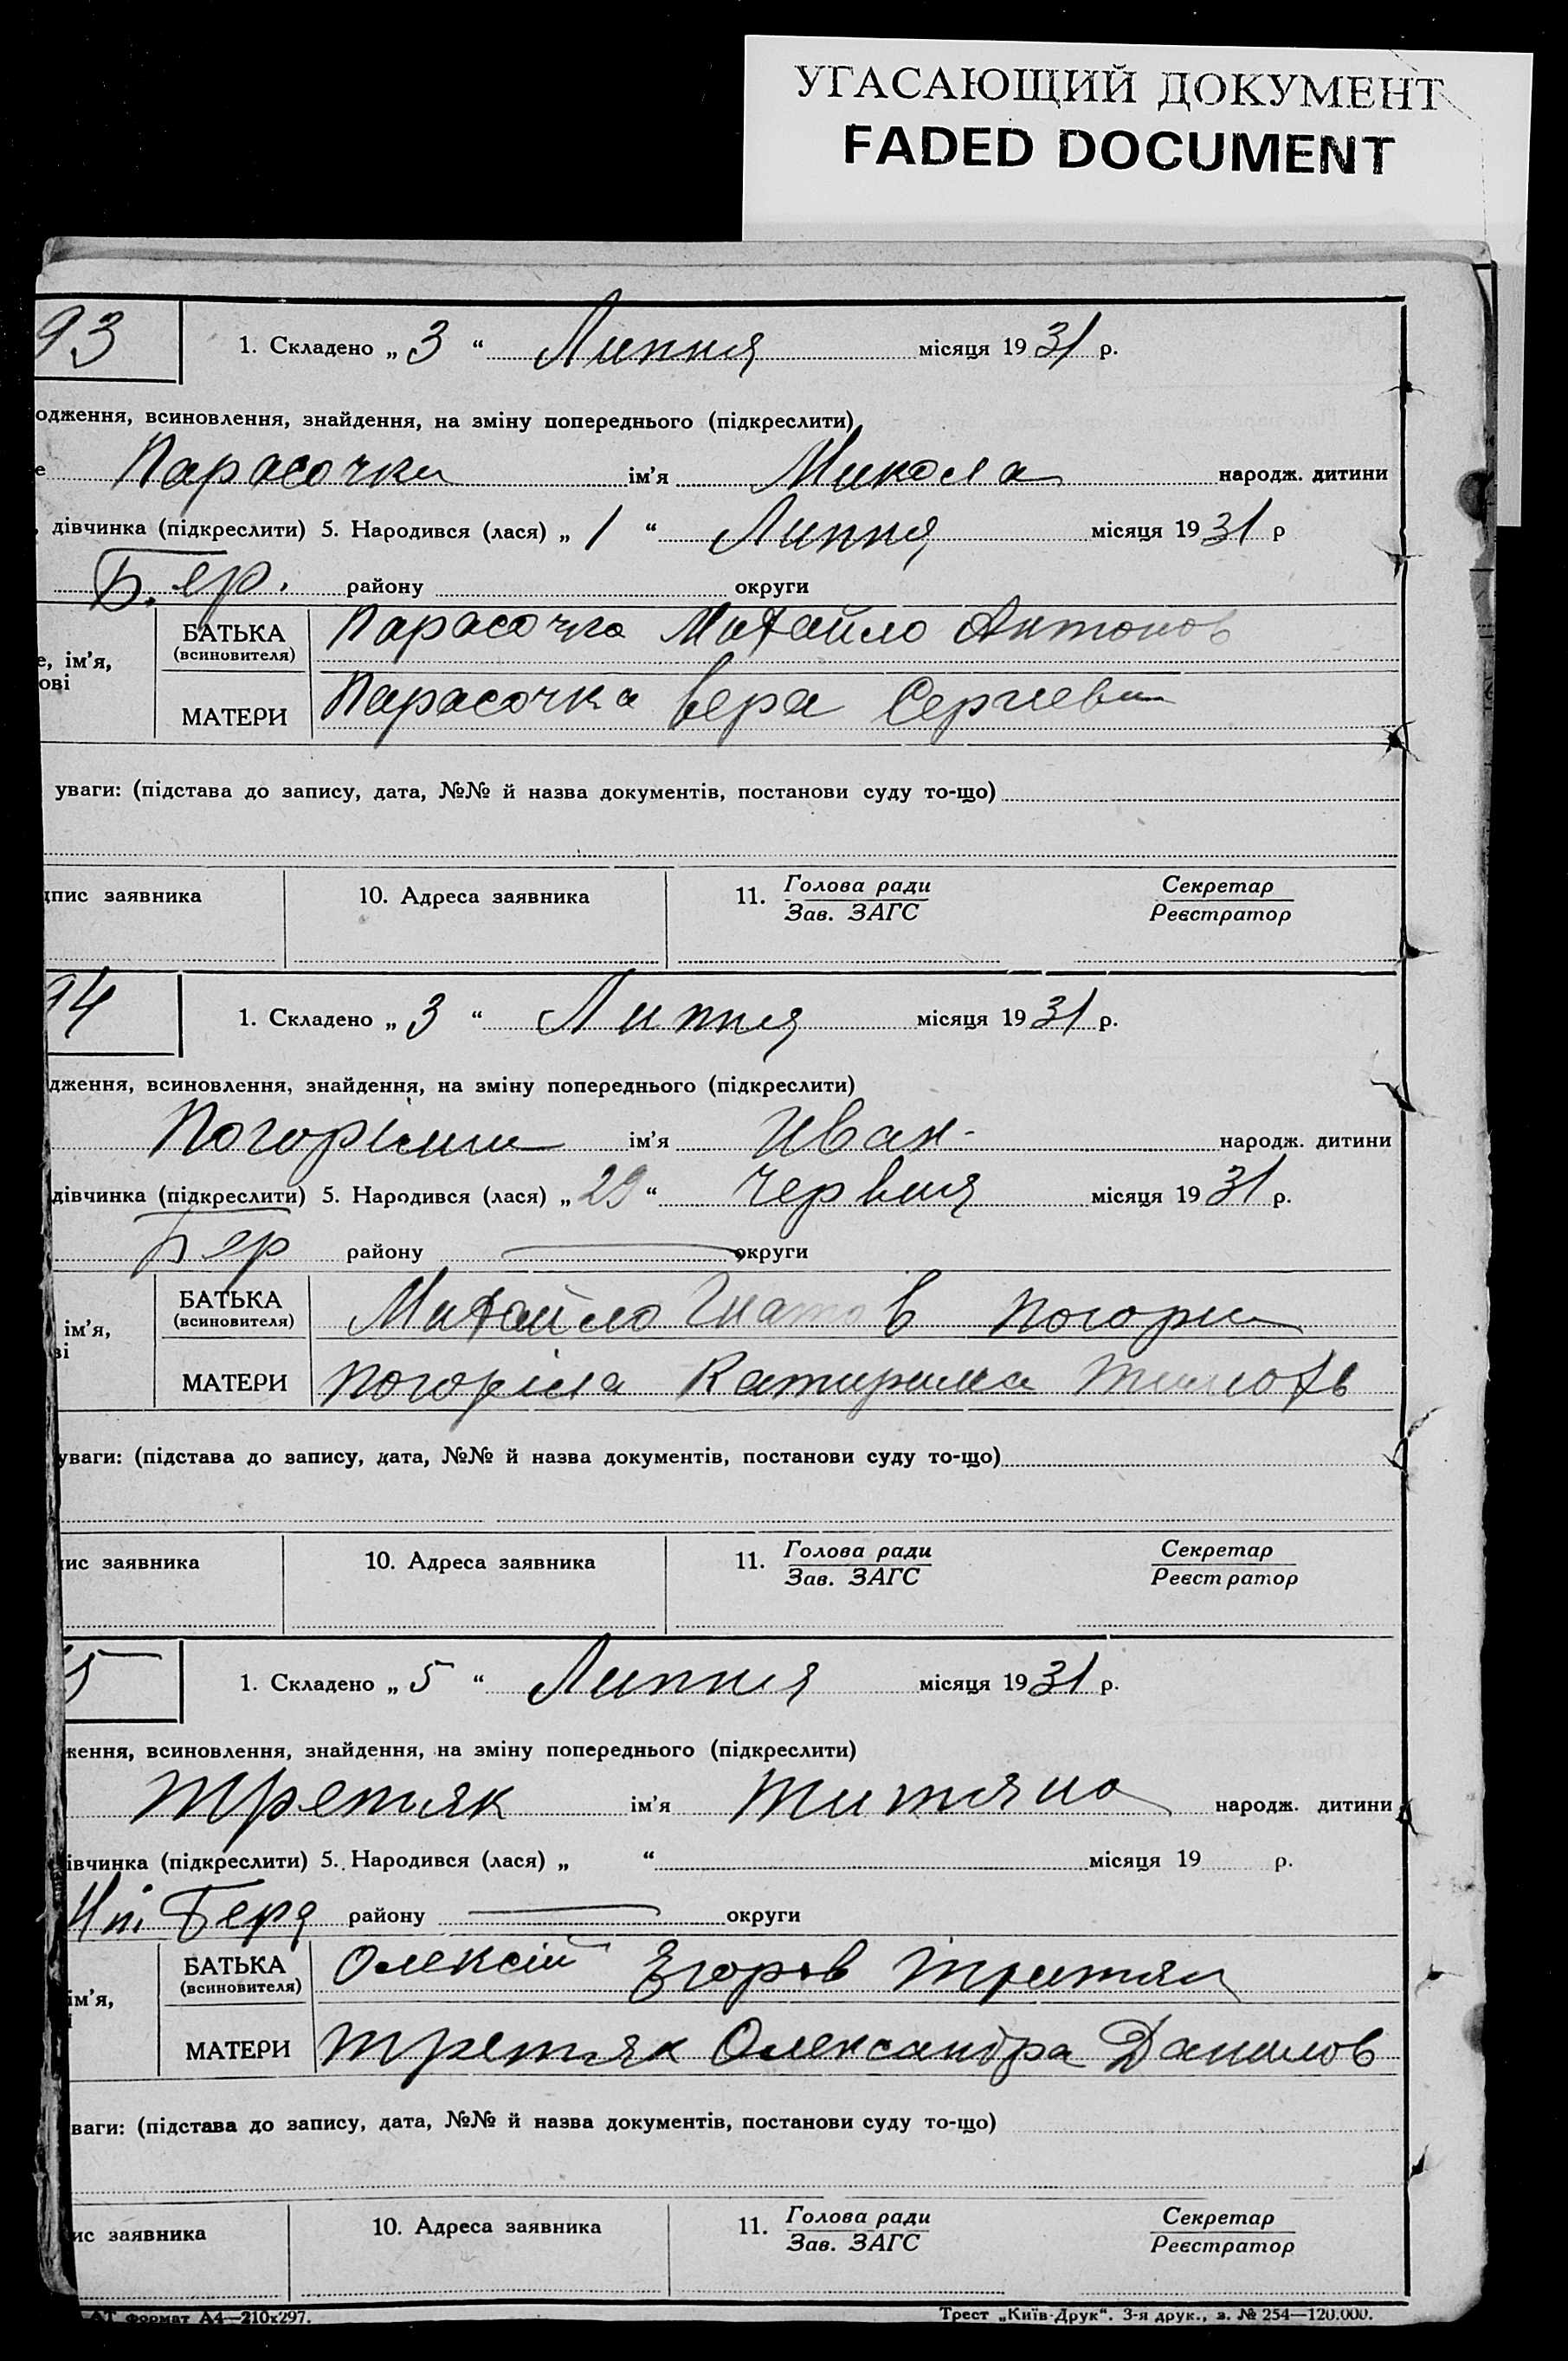 УГАСАЮЩИЙ ДОКУМЕНТ
FADED DOCUMENT
93
1. Складено „ 3 “ Липня місяця 19 31 р.
одження, всиновлення, знайдення, на зміну попереднього (підкреслити)
е Парасочка ім’я Микола народж. дитини
, дівчинка (підкреслити) 5. Народився (лася) „ 1 “ Липня місяця 19 31 р
Б. ер. району округи
е, ім’я,
ові
БАТЬКА Парасочка Михайло Антонов
(всиновителя)
МАТЕРИ Парасочка Вера
уваги: (підстава до запису, дата, №№ й назва документів, постанови суду то-що)
дпис заявника 10. Адреса заявника 11. Голова ради Секретар
Зав. ЗАГС Реєстратор
94
1. Складено „ 3 “ Липня місяця 19 31 р.
дження, всиновлення, знайдення, на зміну попереднього (підкреслити)
ім’я Иван народж. дитини
дівчинка (підкреслити) 5. Народився (лася) „ 29 “ Червня місяця 19 31 р.
Бер району округи
ім’я,
ві
БАТЬКА Михайло
(всиновителя)
МАТЕРИ Погоріла Катирина
уваги: (підстава до запису, дата, №№ й назва документів, постанови суду то-що)
пис заявника 10. Адреса заявника 11. Голова ради Секретар
Зав. ЗАГС Реєстратор
5
1. Складено „ 5 “ Липня місяця 19 31 р.
ження, всиновлення, знайдення, на зміну попереднього (підкреслити)
Третяк ім’я Титяна народж. дитини
івчинка (підкреслити) 5. Народився (лася) „ “ місяця 19 р.
району округи
ім’я,
БАТЬКА Олексій Егоров Третяк
(всиновителя)
МАТЕРИ Третяк Олександра Данилов
ваги: (підстава до запису, дата, №№ й назва документів, постанови суду то-що)
ис заявника 10. Адреса заявника 11. Голова ради Секретар
Зав. ЗАГС Реєстратор
АТ формат А4—210х297. Трест „Київ-Друк“. 3-я друк., з. № 254—120.000.